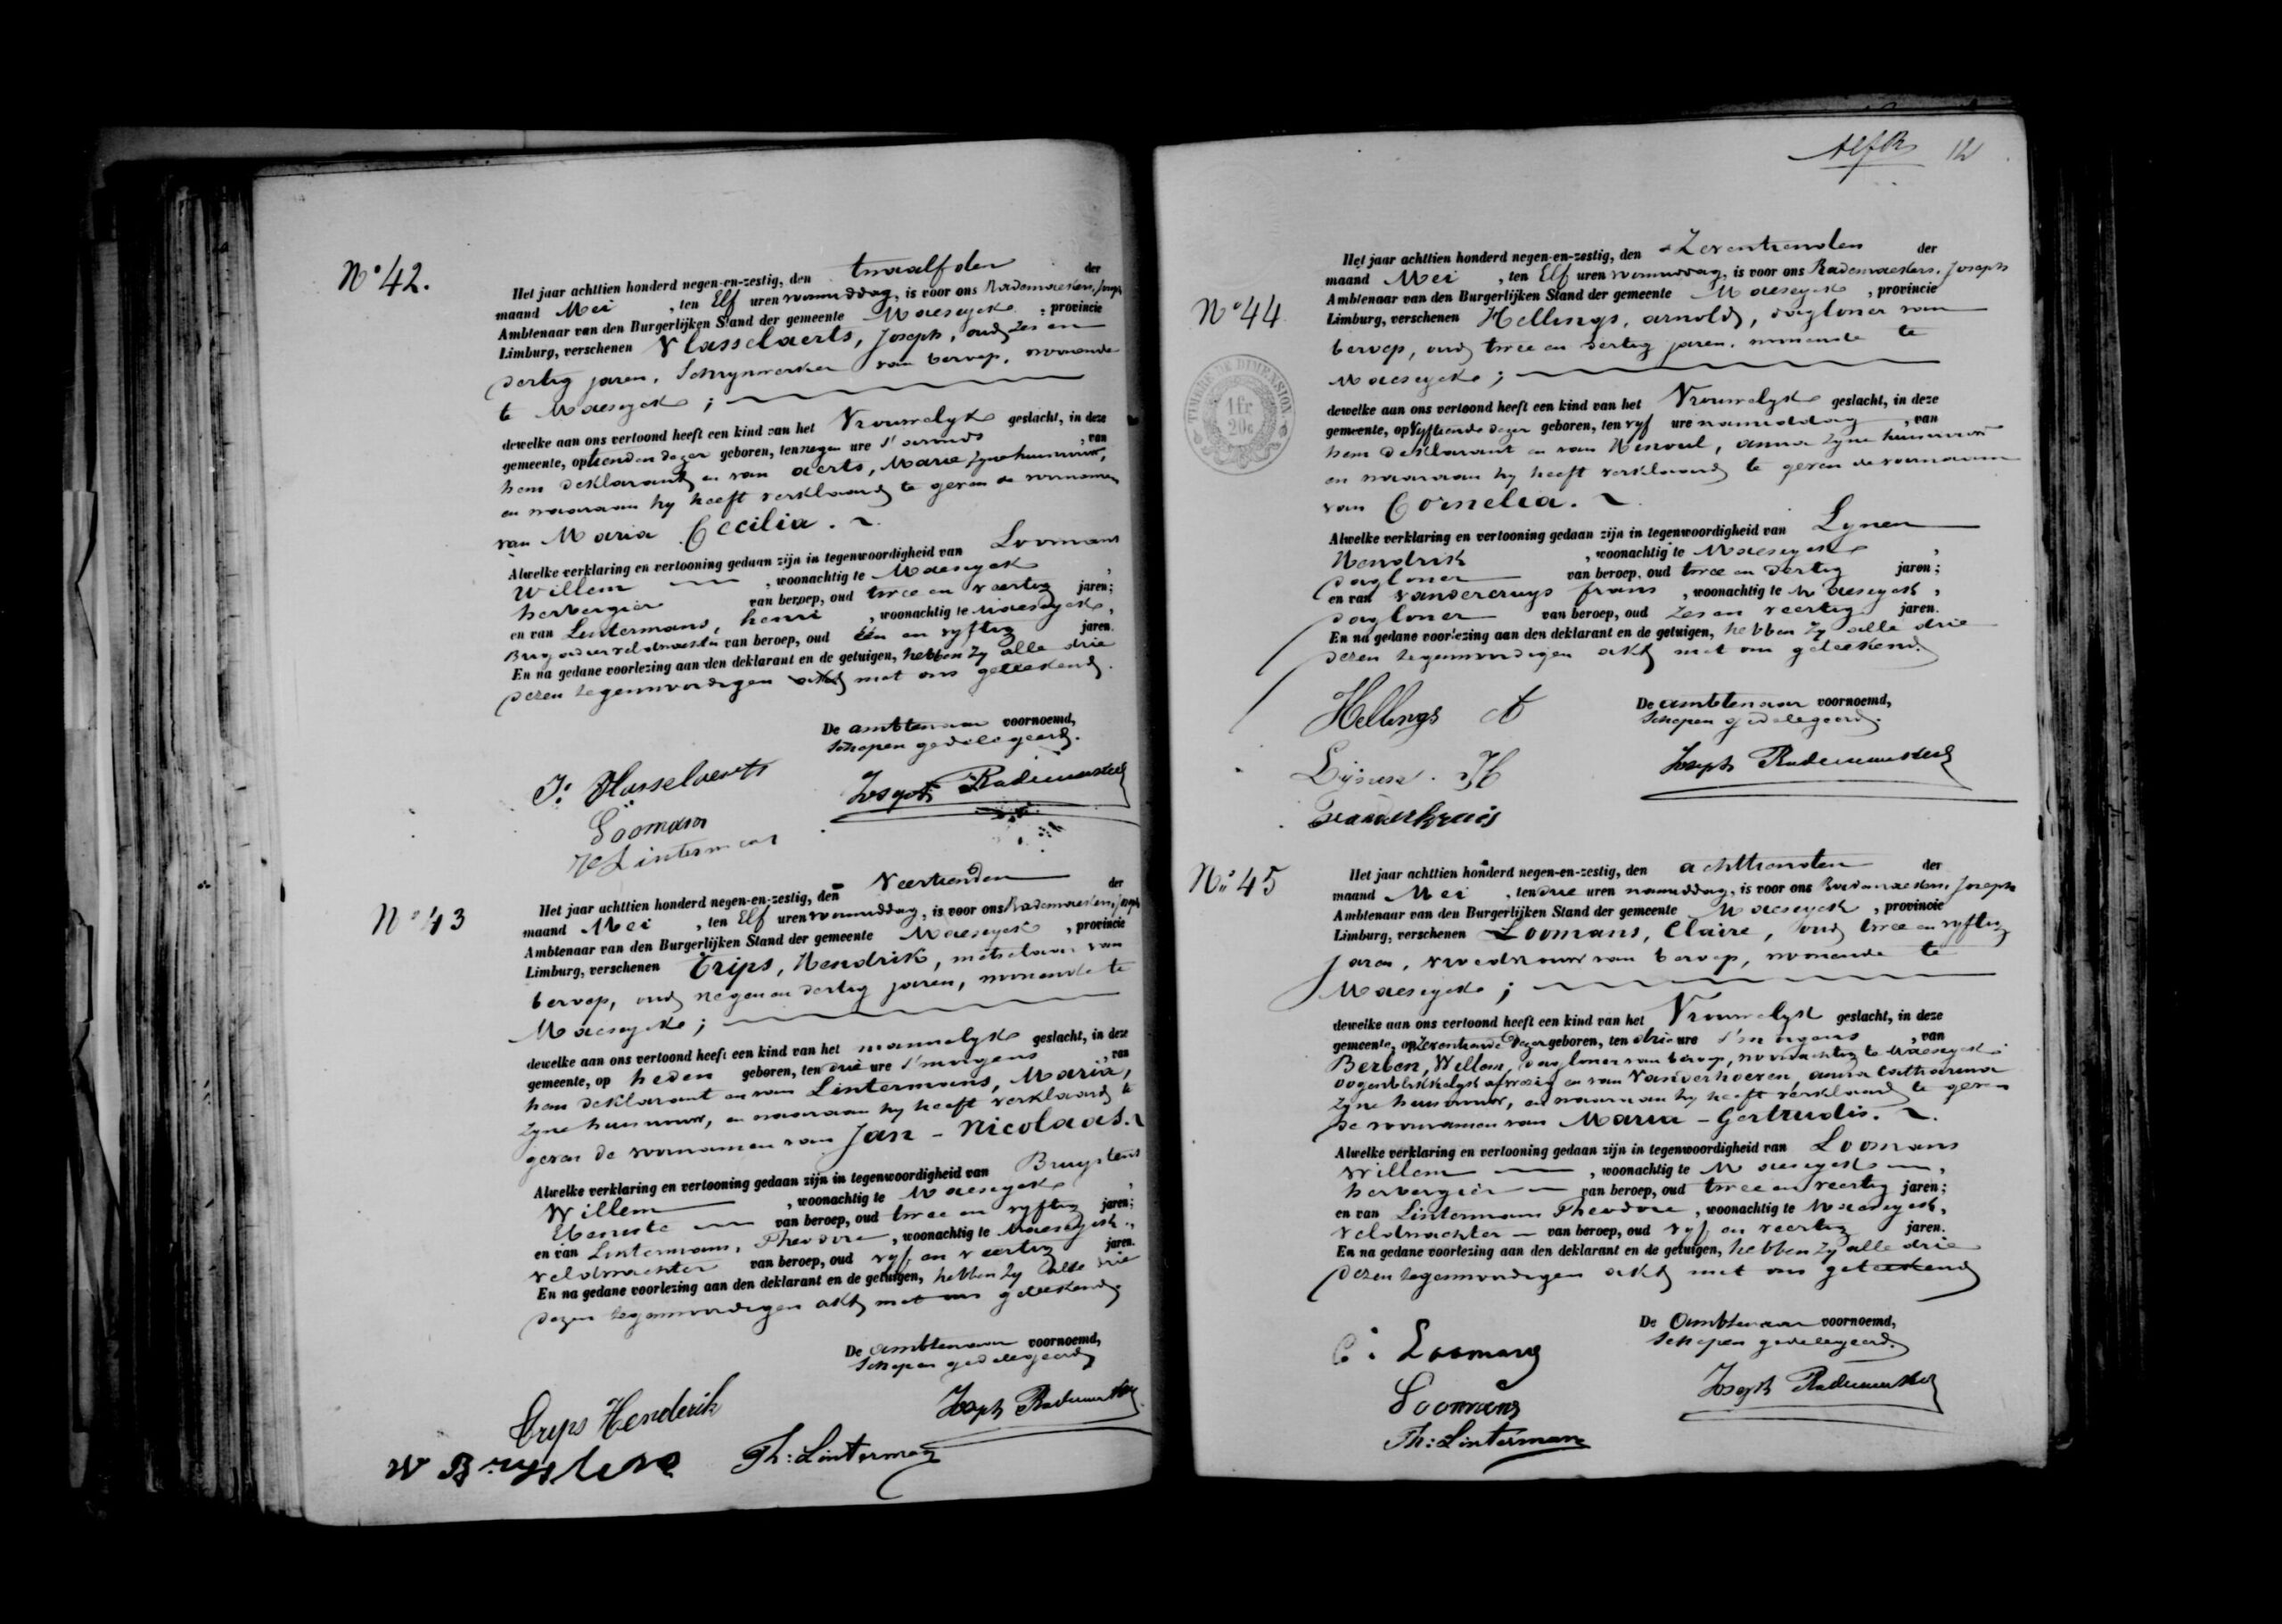 N° 42.
Het jaar achttien honderd negen-en-zestig, den twaalfden der
maand Mei, ten Elf uren voormiddag, is voor ons Rademaekers, Joseph
Ambtenaar van den Burgerlijken Stand der gemeente Maeseyck, provincie
Limburg, verschenen Vlasselaerts, Joseph, oud zes en
dertig jaren, Schrynwerker van beroep, wonende
te Maeseyck;
dewelke aan ons vertoond heeft een kind van het Vrouwelyk geslacht, in deze
gemeente, op tienden dezer geboren, ten negen ure s'avonds, van
hem deklarant en van Aerts, Marie zyne huisvrouw,
en waaraan hy heeft verklaard te geven de voornamen
van Maria Cecilia.
Alwelke verklaring en vertooning gedaan zijn in tegenwoordigheid van Loomans
Willem, woonachtig te Maeseyck,
herbergier van beroep, oud twee en veertig jaren;
en van Lintermans, henri, woonachtig te Maeseyck,
Brigadier veldwachter van beroep, oud één en vyftig jaren.
En na gedane voorlezing aan den deklarant en de getuigen, hebben zy alle drie
dezen tegenwoordigen akt met ons geteekend.
De ambtenaar voornoemd,
Schepen gedelegeerd.
J: Vlasselaerts
Joseph Rademaekers
Loomans
H Lintermans
N° 43
Het jaar achttien honderd negen-en-zestig, den Veertienden der
maand Mei, ten Elf uren voormiddag, is voor ons Rademaekers, Joseph
Ambtenaar van den Burgerlijken Stand der gemeente Maeseyck, provincie
Limburg, verschenen Crips, Hendrik, metselaar van
beroep, oud negen en dertig jaren, wonende te
Maeseyck;
dewelke aan ons vertoond heeft een kind van het mannelyk geslacht, in deze
gemeente, op heden geboren, ten drie ure s'morgens, van
hem deklarant en van Lintermans, Maria,
zyne huisvrouw, en waaraan hy heeft verklaard te
geven de voornamen van Jan - Nicolaas.
Alwelke verklaring en vertooning gedaan zijn in tegenwoordigheid van Bruystens
Willem, woonachtig te Maeseyck,
Ebeniste van beroep, oud twee en vyftig jaren;
en van Lintermans, Theodore, woonachtig te Maeseyck,
veldwachter van beroep, oud vyf en veertig jaren.
En na gedane voorlezing aan den deklarant en de getuigen, hebben zy alle drie
dezen tegenwoordigen akt met ons geteekend
De ambtenaar voornoemd,
Schepen gedelegeerd
Crips Henderik
Joseph Rademaekers
W Bruystens
Th: Lintermans
12
N° 44
TIMBRE DE DIMENSION
1 fr
20c
Het jaar achttien honderd negen-en-zestig, den Zeventienden der
maand Mei, ten Elf uren voormiddag, is voor ons Rademaekers, Joseph
Ambtenaar van den Burgerlijken Stand der gemeente Maeseyck, provincie
Limburg, verschenen Hellings, arnold, dagloner van
beroep, oud twee en dertig jaren, wonende te
Maeseyck;
dewelke aan ons vertoond heeft een kind van het Vrouwelyk geslacht, in deze
gemeente, op Vyftiende dezer geboren, ten vyf ure namiddag, van
hem deklarant en van Henoul, anna zyne huisvrouw
en waaraan hy heeft verklaard te geven de voornaam
van Cornelia.
Alwelke verklaring en vertooning gedaan zijn in tegenwoordigheid van Lynen
Hendrik, woonachtig te Maeseyck,
dagloner van beroep, oud twee en dertig jaren;
en van Vandercruys frans, woonachtig te Maeseyck,
dagloner van beroep, oud zes en veertig jaren.
En na gedane voorlezing aan den deklarant en de getuigen, hebben zy alle drie
dezen tegenwoordigen akt met ons geteekend.
De ambtenaar voornoemd,
Schepen gedelegeerd.
Hellings A
Joseph Rademaekers
Lijnen. H
N° 45
Het jaar achttien honderd negen-en-zestig, den achttienden der
maand Mei, ten drie uren namiddag, is voor ons Rademaekers Joseph
Ambtenaar van den Burgerlijken Stand der gemeente Maeseyck, provincie
Limburg, verschenen Loomans, Claire, oud twee en vyftig
jaren, vroedvrouw van beroep, wonende te
Maeseyck;
dewelke aan ons vertoond heeft een kind van het Vrouwelyk geslacht, in deze
gemeente, op Zeventiende dezer geboren, ten drie ure s'morgens, van
Berben, Willem, dagloner van beroep, woonachtig te Maeseyck
oogenblikkelyk afwezig en van Vanderhoeven, anna Catharina
zyne huisvrouw, en waaraan hy heeft verklaard te geven
de voornamen van Maria - Gertrudis.
Alwelke verklaring en vertooning gedaan zijn in tegenwoordigheid van Loomans
Willem, woonachtig te Maeseyck,
herbergier van beroep, oud twee en veertig jaren;
en van Lintermans Theodore, woonachtig te Maeseyck,
veldwachter van beroep, oud vyf en veertig jaren.
En na gedane voorlezing aan den deklarant en de getuigen, hebben zy alle drie
dezen tegenwoordigen akt met ons geteekend
De Ambtenaar voornoemd,
Schepen gedelegeerd.
C: Loomans
Joseph Rademaekers
Loomans
Th: Lintermans